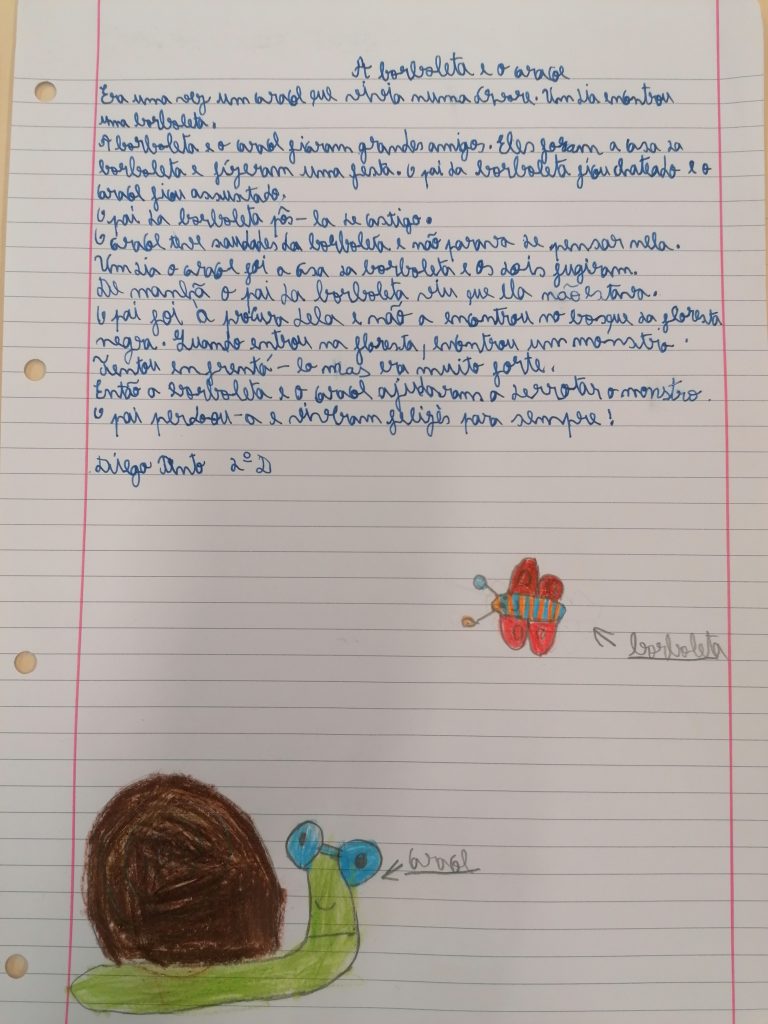 A borboleta e o caracol
Era uma vez um caracol que vivia numa árvore. Um dia encontrou
uma borboleta.
A borboleta e o caracol ficaram grandes amigos. Eles foram a casa da
borboleta e fizeram uma festa. O pai da borboleta ficou chateado e o
caracol ficou assustado.
O pai da borboleta pôs-la de castigo.
O caracol teve saudades da borboleta e não parava de pensar nela.
Um dia o caracol foi a casa da borboleta e os dois fugiram.
De manhã o pai da borboleta viu que ela não estava.
O pai foi à procura dela e não a encontrou no bosque da floresta
negra. Quando entrou na floresta, encontrou um monstro.
Tentou enfrentá-lo mas era muito forte.
Então a borboleta e o caracol ajudaram a derrotar o monstro.
O pai perdoou-a e viveram felizes para sempre!
Diego 2º D
borboleta
caracol